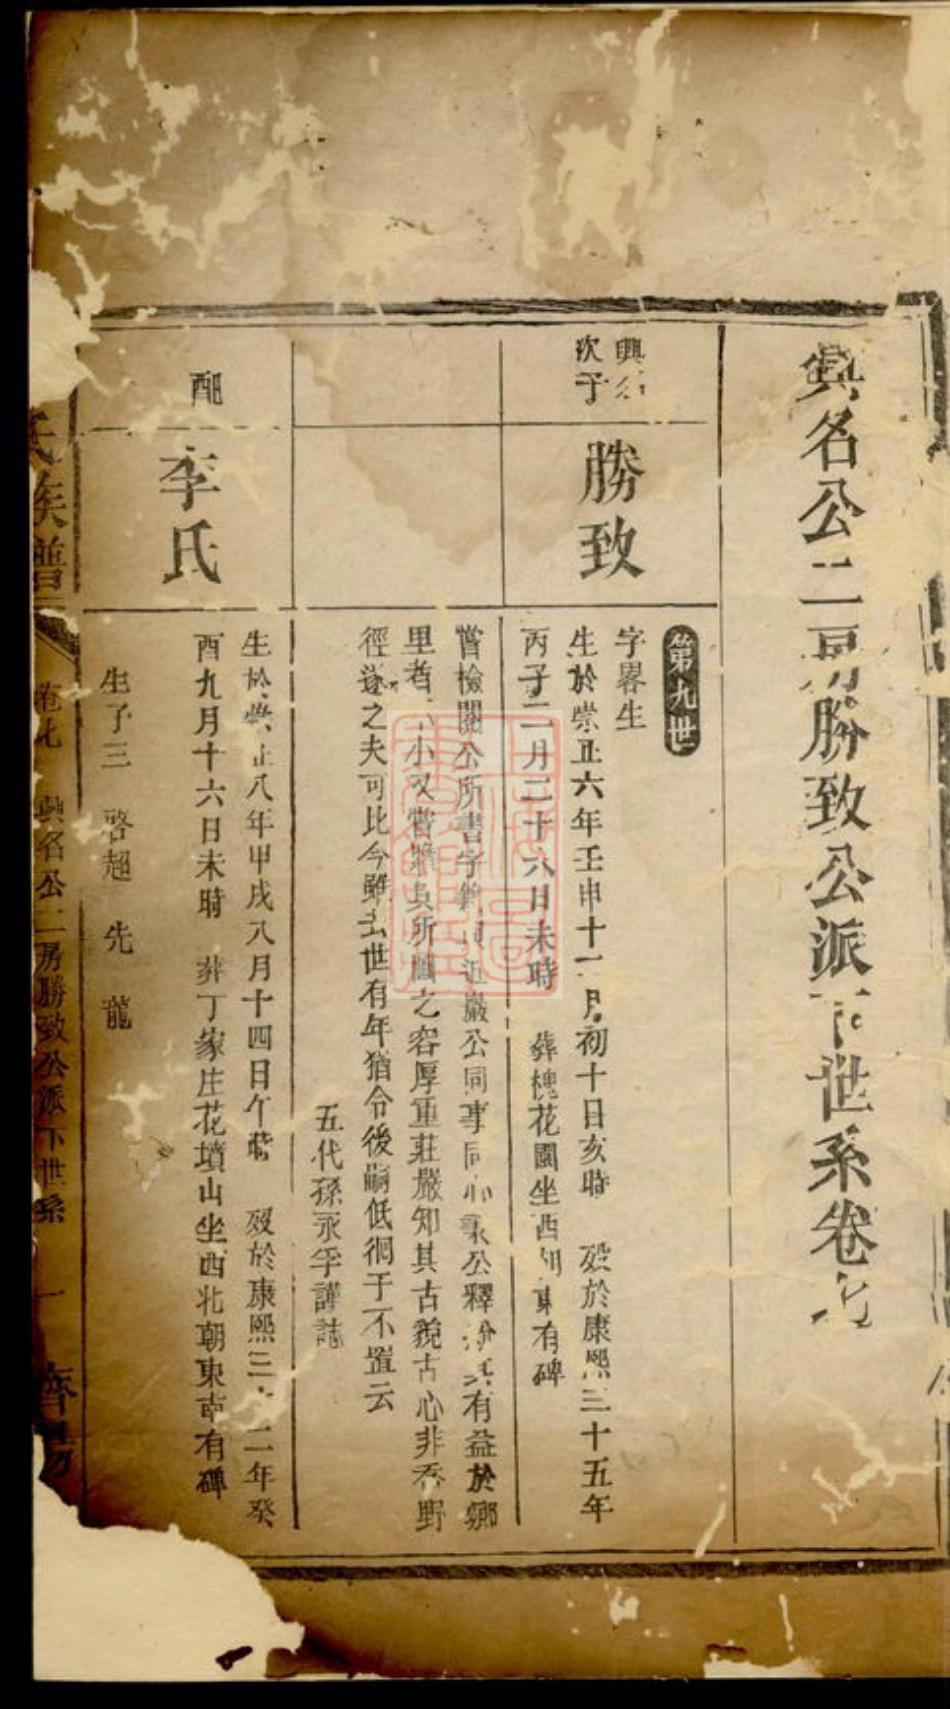 興名公二房勝致公派下世系卷七
第九世
興名
次子
勝致
字畧生
生於崇正六年壬申十一月初十日亥時 歿於康熙三十五年
丙子二月二十六日未時 葬槐花園坐西向東有碑
嘗檢閱公所書字 巖公同事同 公釋 有益於鄉
里者 小又嘗 其所 之容厚重莊嚴知其古貌古心非 野
徑遂之夫可比今雖去世有年猶令後嗣低徊于不置云
五代孫永孚謹誌
配
李氏
生於崇正八年甲戌八月十四日午時 歿於康熙三十二年癸
酉九月十六日未時 葬丁家庄花墳山坐西北朝東南有碑
生子三 啓超 先 龍
氏族譜
卷七 興名公二房勝致公派下世系 一